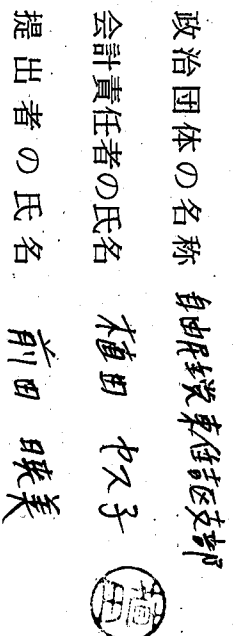 政治団体の名称 自由民主党東住吉区支部
会計責任者の氏名 植田 ヤス子
提出者の氏名 前田 暎美